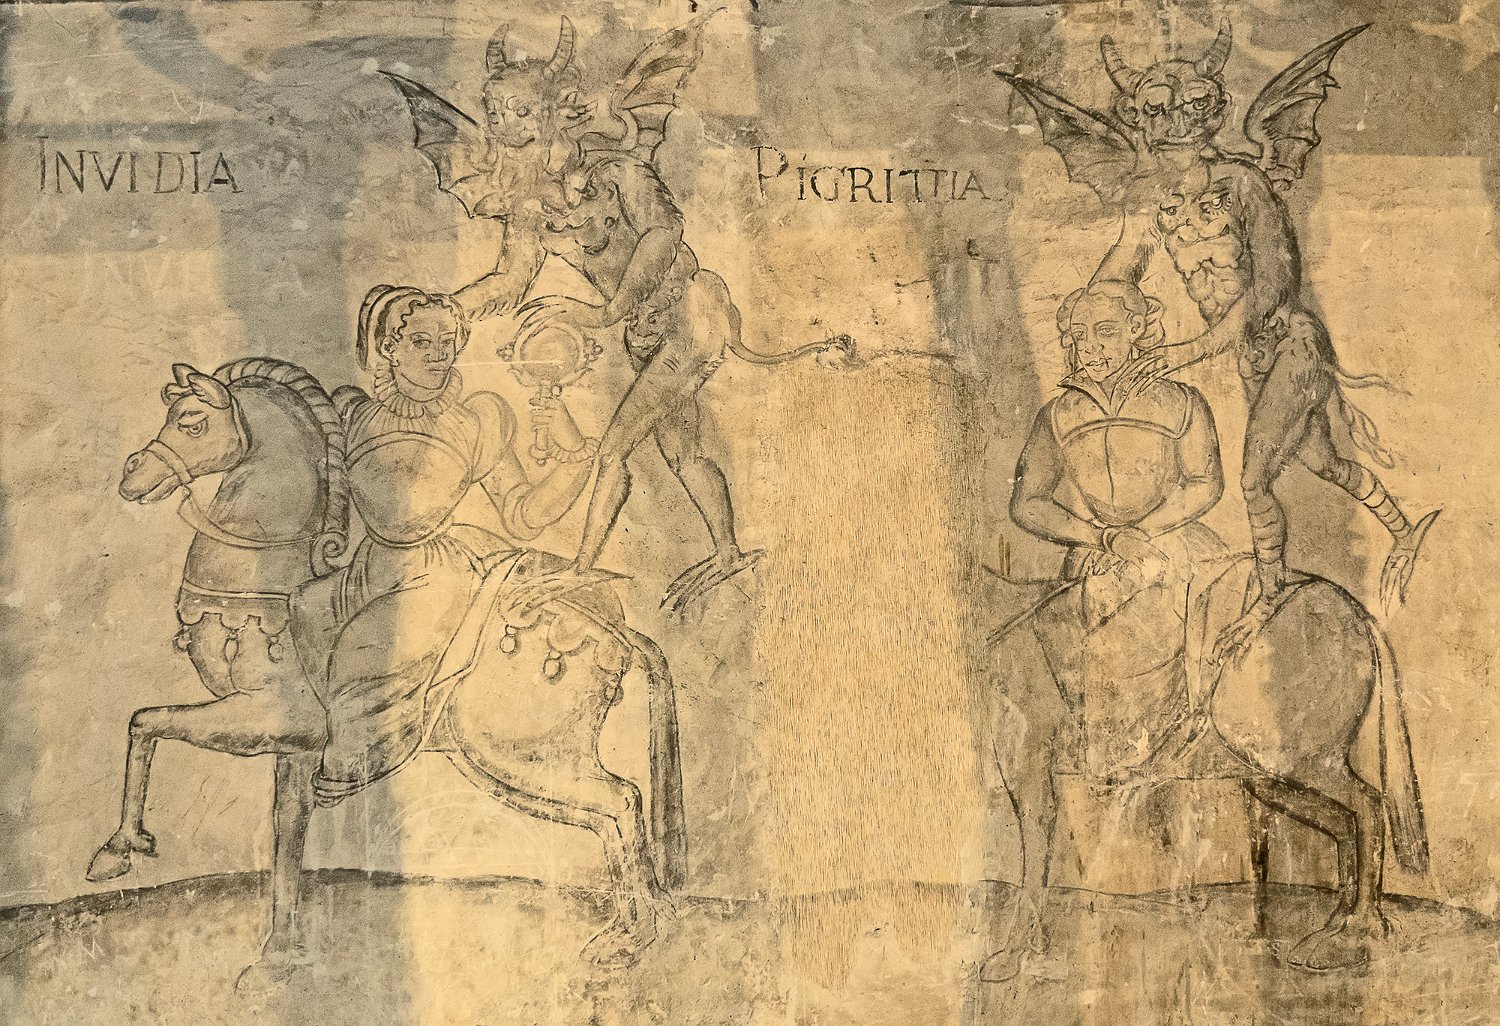 INVIDIA
PIGRITTIA